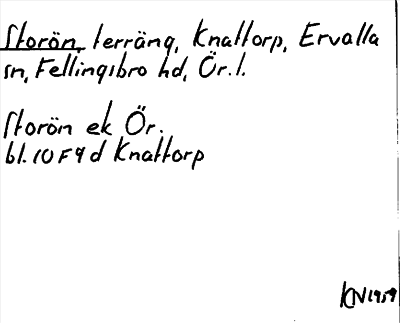 Storön, terräng, Knattorp, Ervalla
sn, Fellingsbro hd, Ör. l.
Storön ek Ör.
bl. 10F9d Knattorp
KN1959